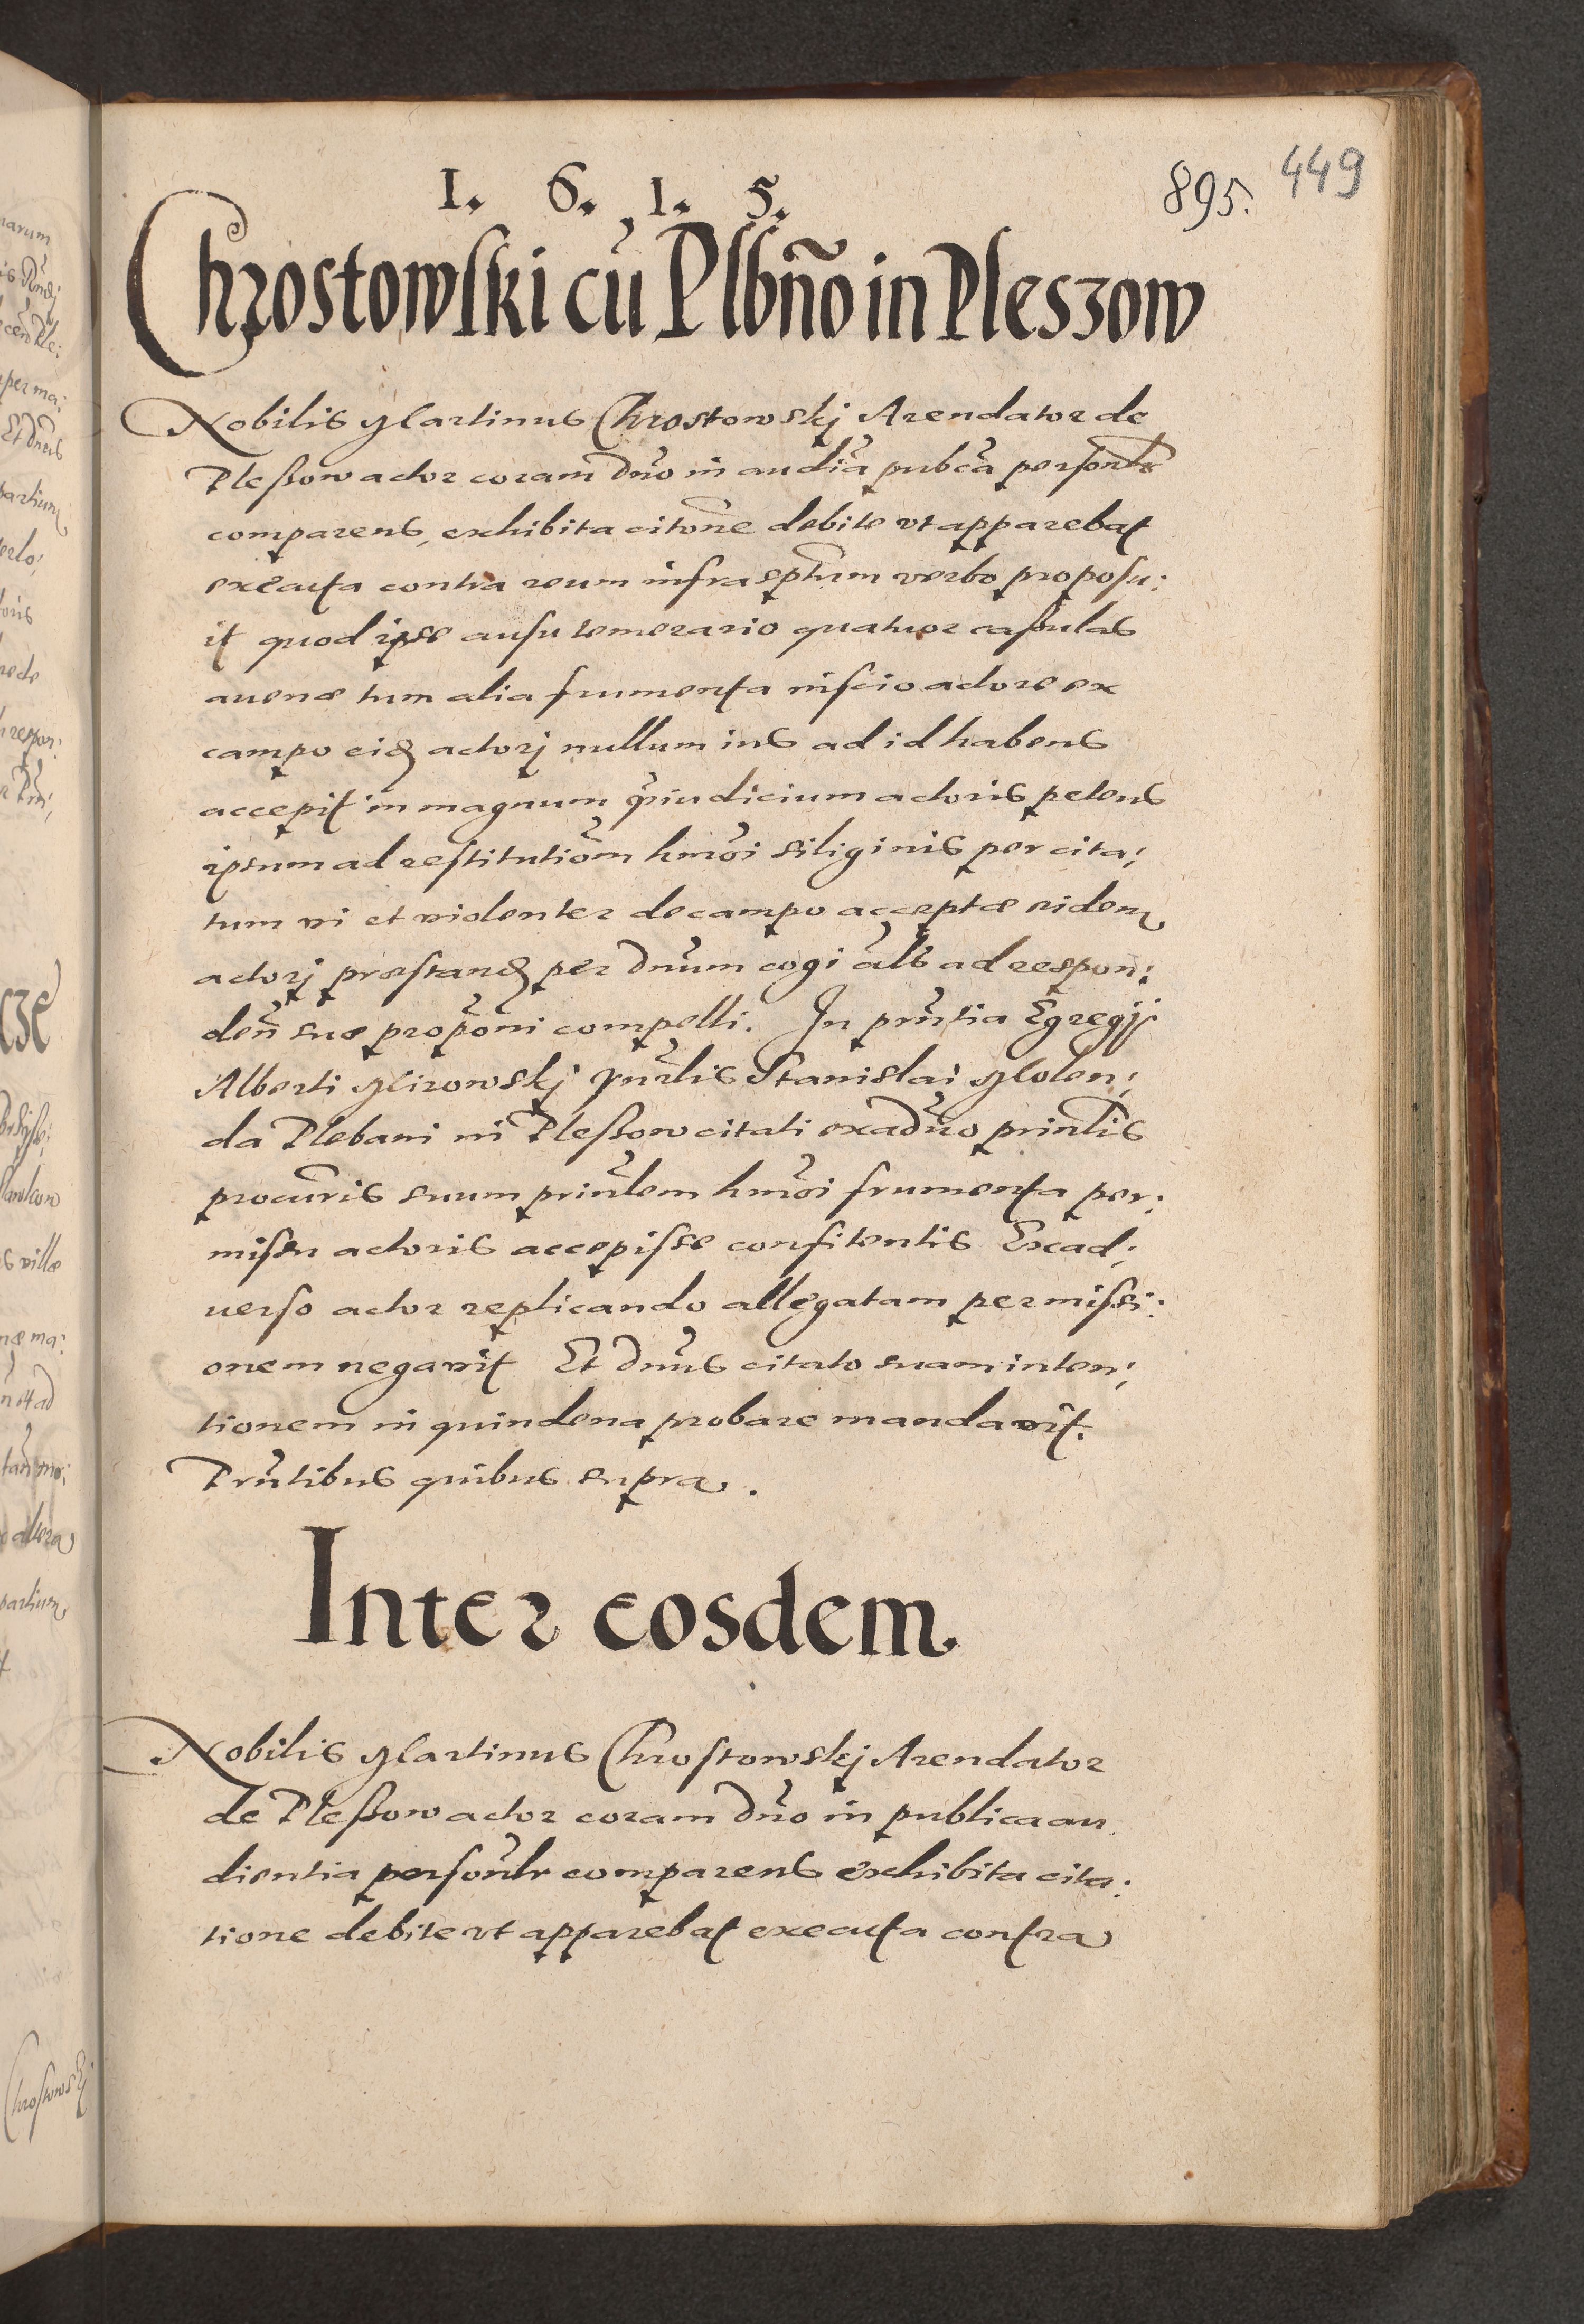 1. 6. 1. 5.
895. 449
Chrostowski cũ Plbño in Pleszow
Nobilis Martinus Chrostowskj Arendator de
Pleßow actor coram dño in audiã pubcã personlr
comparens, exhibita citõne debite vt apparebat
executa contra reum infrascptum verbo proposu:
it quod ipse ausu temerario quatuor cassulas
auenæ tum alia frumenta inscio actore ex
campo eiq actorj nullum ius ad id habens
accepit in magnum p̃iudicium actoris petens
ipsum ad restitutiõm hmõi siliginis per cita:
tum vi et violenter de campo acceptæ eidem
actorj præstand per dnũm cogi als ad respon:
deñ suæ propõni compelli. In pñtia Egregij
Alberti Mirowskj pñrlis Stanislai Molen:
da Plebani in Pleßow citati ex aduo prinlis
procuris suum prinlem hmõi frumenta per:
missu actoris accepisse confitentis Exad:
uerso actor replicando allegatam permissi:
onem negavit Et dnũs citato suam inten:
tionem in quindena probare mandavit.
Pñtibus quibus supra.
Inter eosdem.
Nobilis Martinus Chrostowskj Arendator
de Pleßow actor coram dño in publica au
dientia personlr comparens exhibita cita:
tione debite vt apparebat executa contra